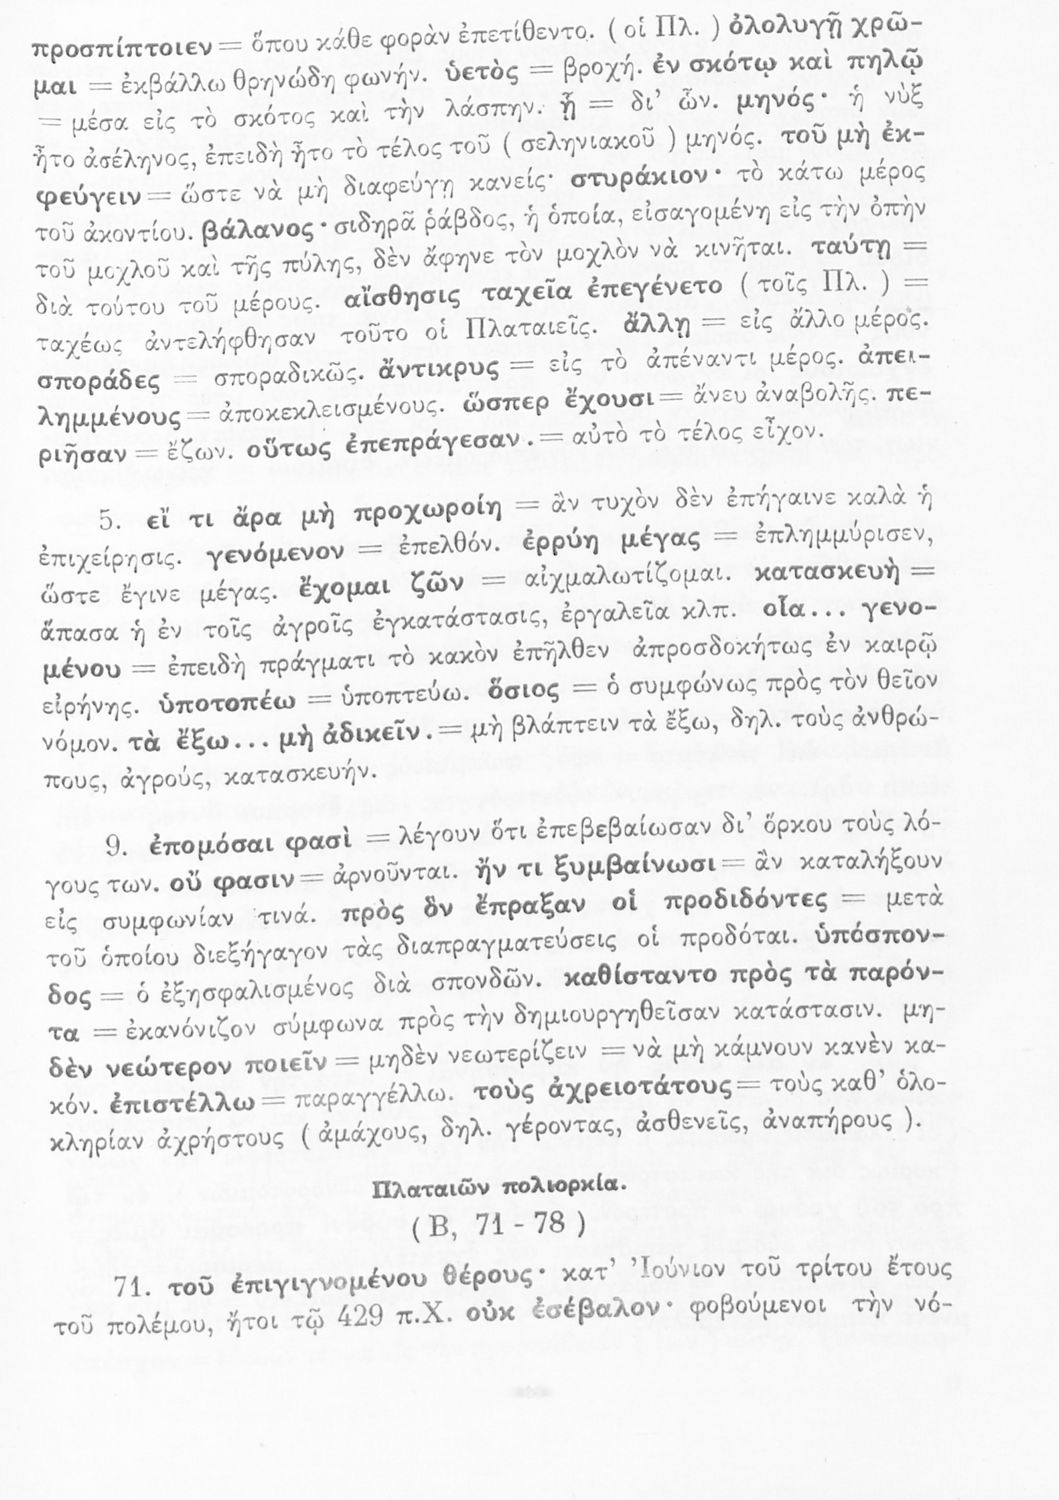 προσπίπτοιεν = ὅπου κάθε φορὰν ἐπετίθεντο. ( οἱ Πλ. ) ὀλολυγῇ χρῶ-
μαι = ἐκβάλλω θρηνώδη φωνήν. ὑετὸς = βροχή. ἐν σκότῳ καὶ πηλῷ
= μέσα εἰς τὸ σκότος καὶ τὴν λάσπην. ᾗ = δι’ ὧν. μηνός · ἡ νὺξ
ἦτο ἀσέληνος, ἐπειδὴ ἦτο τὸ τέλος τοῦ ( σεληνιακοῦ ) μηνός. τοῦ μὴ ἐκ-
φεύγειν = ὥστε νὰ μὴ διαφεύγῃ κανείς· στυράκιον · τὸ κάτω μέρος
τοῦ ἀκοντίου. βάλανος · σιδηρᾶ ῥάβδος, ἡ ὁποία, εἰσαγομένη εἰς τὴν ὀπὴν
τοῦ μοχλοῦ καὶ τῆς πύλης, δὲν ἄφηνε τὸν μοχλὸν νὰ κινῆται. ταύτῃ =
διὰ τούτου τοῦ μέρους. αἴσθησις ταχεῖα ἐπεγένετο ( τοῖς Πλ. ) =
ταχέως ἀντελήφθησαν τοῦτο οἱ Πλαταιεῖς. ἄλλῃ = εἰς ἄλλο μέρος.
σποράδες = σποραδικῶς. ἄντικρυς = εἰς τὸ ἀπέναντι μέρος. ἀπει-
λημμένους = ἀποκεκλεισμένους. ὥσπερ ἔχουσι = ἄνευ ἀναβολῆς. πε-
ριῆσαν = ἔζων. οὕτως ἐπεπράγεσαν . = αὐτὸ τὸ τέλος εἶχον.
5. εἴ τι ἄρα μὴ προχωροίη = ἂν τυχὸν δὲν ἐπήγαινε καλὰ ἡ
ἐπιχείρησις. γενόμενον = ἐπελθόν. ἐρρύη μέγας = ἐπλημμύρισεν,
ὥστε ἔγινε μέγας. ἔχομαι ζῶν = αἰχμαλωτίζομαι. κατασκευὴ =
ἅπασα ἡ ἐν τοῖς ἀγροῖς ἐγκατάστασις, ἐργαλεῖα κλπ. οἷα... γενο-
μένου = ἐπειδὴ πράγματι τὸ κακὸν ἐπῆλθεν ἀπροσδοκήτως ἐν καιρῷ
εἰρήνης. ὑποτοπέω = ὑποπτεύω. ὅσιος = ὁ συμφώνως πρὸς τὸν θεῖον
νόμον. τὰ ἔξω... μὴ ἀδικεῖν . = μὴ βλάπτειν τὰ ἔξω, δηλ. τοὺς ἀνθρώ-
πους, ἀγρούς, κατασκευήν.
9. ἐπομόσαι φασὶ = λέγουν ὅτι ἐπεβεβαίωσαν δι’ ὅρκου τοὺς λό-
γους των. οὔ φασιν = ἀρνοῦνται. ἤν τι ξυμβαίνωσι = ἂν καταλήξουν
εἰς συμφωνίαν τινά. πρὸς ὃν ἔπραξαν οἱ προδιδόντες = μετὰ
τοῦ ὁποίου διεξήγαγον τὰς διαπραγματεύσεις οἱ προδόται. ὑπόσπον-
δος = ὁ ἐξησφαλισμένος διὰ σπονδῶν. καθίσταντο πρὸς τὰ παρόν-
τα = ἐκανόνιζον σύμφωνα πρὸς τὴν δημιουργηθεῖσαν κατάστασιν. μη-
δὲν νεώτερον ποιεῖν = μηδὲν νεωτερίζειν = νὰ μὴ κάμνουν κανὲν κα-
κόν. ἐπιστέλλω = παραγγέλλω. τοὺς ἀχρειοτάτους = τοὺς καθ’ ὁλο-
κληρίαν ἀχρήστους ( ἀμάχους, δηλ. γέροντας, ἀσθενεῖς, ἀναπήρους ).
Πλαταιῶν πολιορκία.
( Β, 71 - 78 )
71. τοῦ ἐπιγιγνομένου θέρους · κατ’ Ἰούνιον τοῦ τρίτου ἔτους
τοῦ πολέμου, ἤτοι τῷ 429 π.Χ. οὐκ ἐσέβαλον · φοβούμενοι τὴν νό-